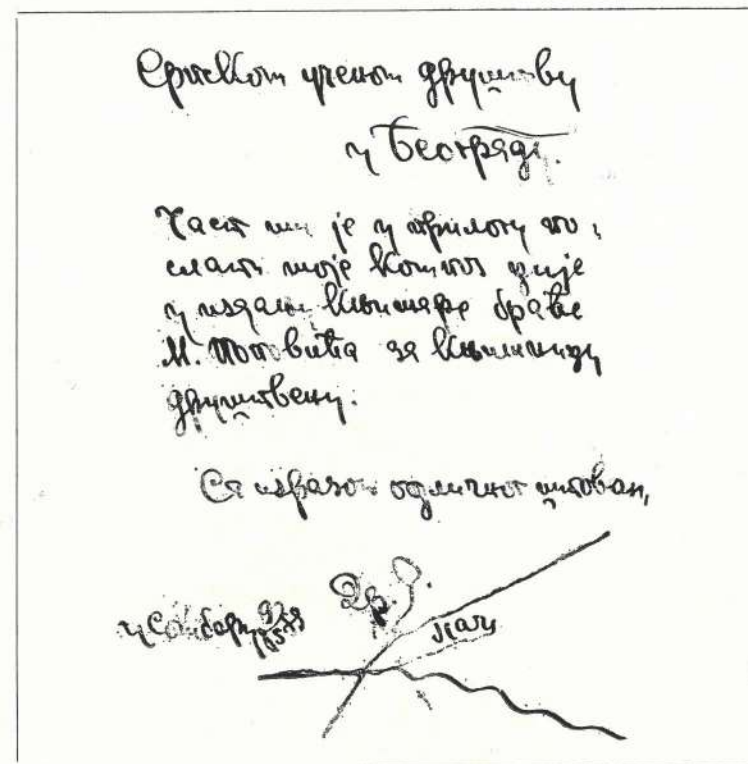 Српском ученом друштву
у Београду.
Част ми је у прилогу по
слати моје
у издању књижаре браће
М. Поповића за књижницу
друштвену.
Са изразом одличног штовања,
у Сомбору
Др.